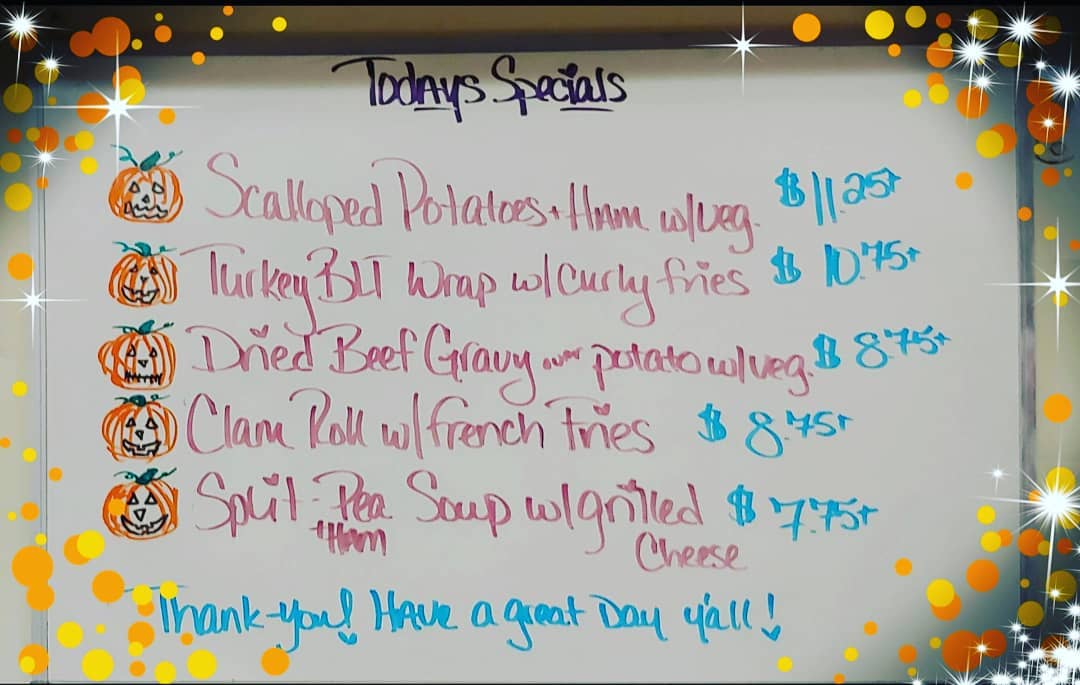 Todays Specials
Scalloped Potatoes + Ham w/veg. $11.25+
Turkey BLT Wrap w/Curly fries $10.75+
Dried Beef Gravy over potato w/veg. $8.75+
Clam Roll w/french Fries $8.75+
Split-Pea Soup w/grilled $7.75+
+Ham Cheese
Thank-you! Have a great Day y'all!